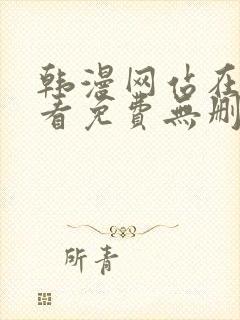 韩漫网站在
看免費無删
所青